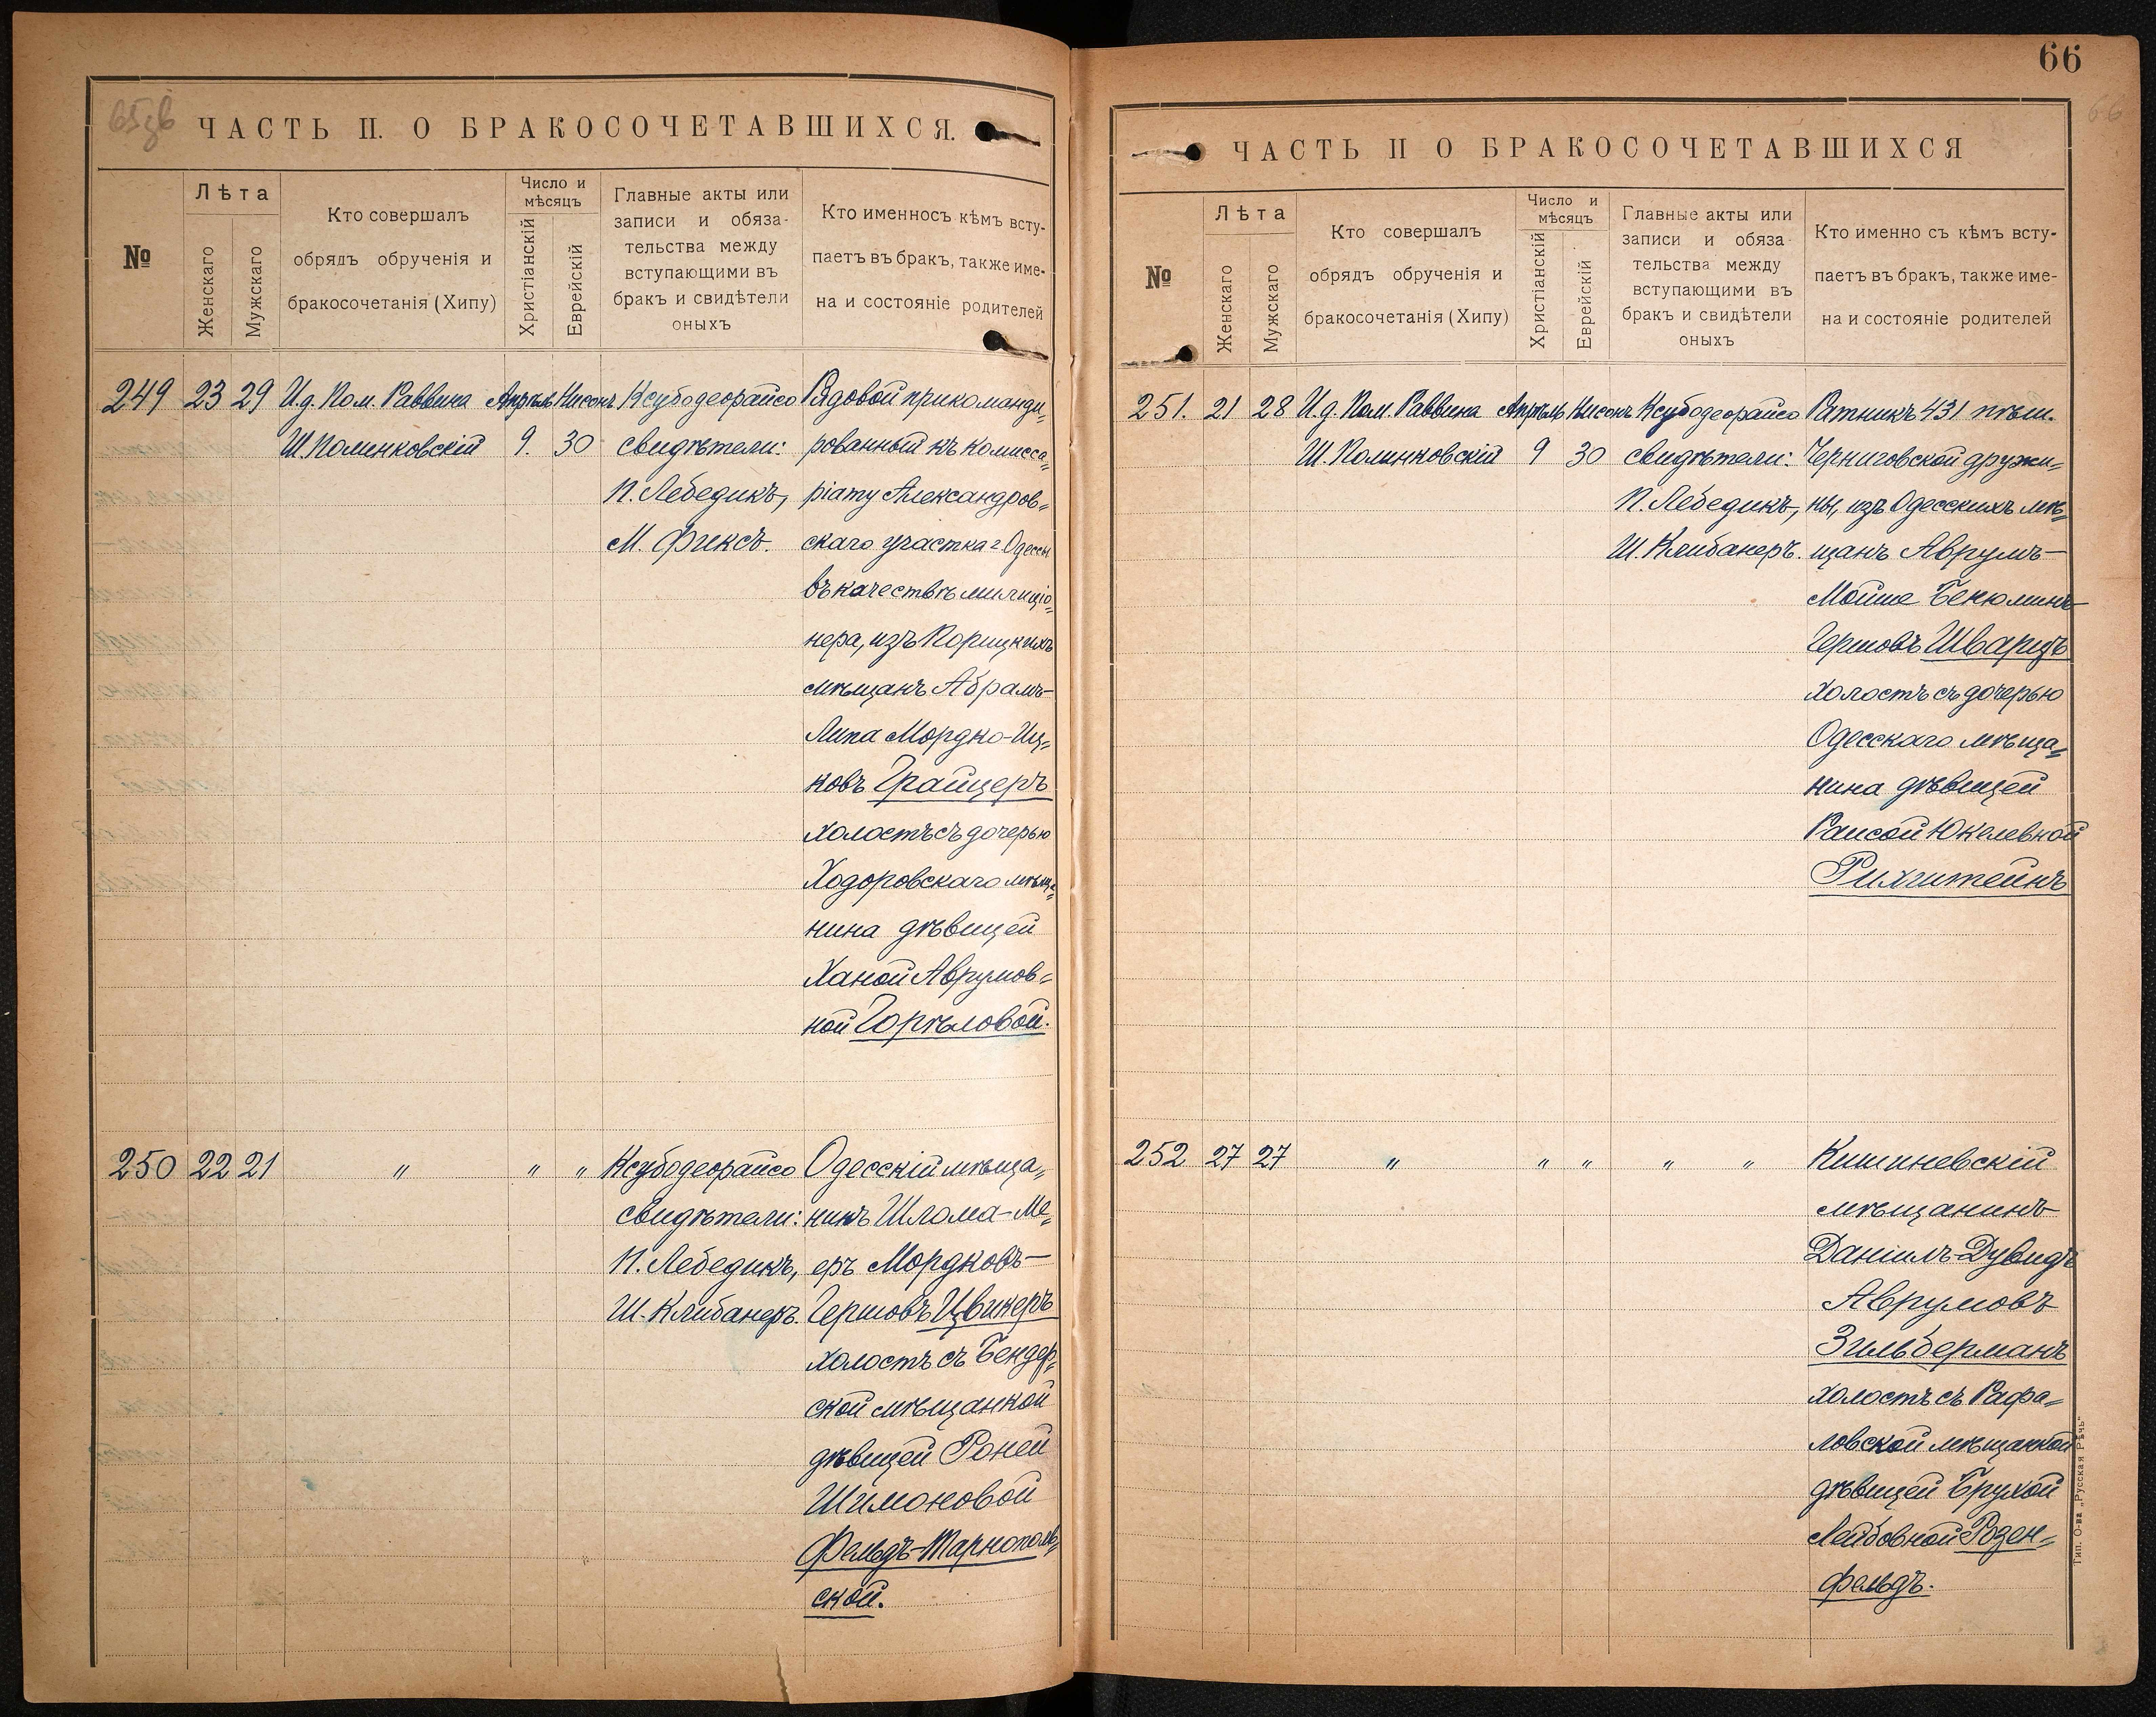 65об
ЧАСТЬ II. О БРАКОСОЧЕТАВШИХСЯ.
№
Лѣта
Женскаго
Мужскаго
Кто совершалъ
обрядъ обрученія и
бракосочетанія (Хипу)
Число и
мѣсяцъ
Христіанскій
Еврейскій
Главные акты или
записи и обяза-
тельства между
вступающими въ
бракъ и свидѣтели
оныхъ
Кто именносъ кѣмъ всту-
паетъ въ бракъ, также име-
на и состояніе родителей
249 23 29 И.д. Пом. Раввина Апрѣль Нисонъ Ксубодеорайсо Рядовой прикоманди-
Ш. Полинковскій 9. 30 свидѣтели: рованный къ комисса-
П. Лебедикъ, ріату Александров-
М. Фиксъ. скаго участка г. Одессы
въ качествѣ милиціо-
нера, изъ Порицкихъ
мѣщанъ Абрамъ-
Липа Мордко-Иц-
ковъ Грайцеръ
холостъ съ дочерью
Ходоровскаго мѣща-
нина дѣвицей
Ханой Аврумов-
ной Горѣловой.
250 22 21 " " " Ксубодеорайсо Одесскій мѣща-
свидѣтели: нинъ Шлома-Ме-
П. Лебедикъ, еръ Мордковъ-
Ш. Клибанеръ. Гершовъ Цвикеръ
холостъ съ Бендер-
ской мѣщанкой
дѣвицей Роней
Шимоновой
Фельдъ-Тарнополь-
ской.
66
66
ЧАСТЬ II О БРАКОСОЧЕТАВШИХСЯ
№
Лѣта
Женскаго
Мужскаго
Кто совершалъ
обрядъ обрученія и
бракосочетанія (Хипу)
Число и
мѣсяцъ
Христіанскій
Еврейскій
Главные акты или
записи и обяза-
тельства между
вступающими въ
бракъ и свидѣтели
оныхъ
Кто именно съ кѣмъ всту-
паетъ въ бракъ, также име-
на и состояніе родителей
251. 21 28 И.д. Пом. Раввина Апрѣль Нисонъ Ксубодеорайсо Ратникъ 431 пѣш.
Ш. Полинковскій 9 30 свидѣтели: Черниговской дружи-
П. Лебедикъ, ны, изъ Одесскихъ мѣ-
Ш. Клибанеръ. щанъ Аврумъ-
Мойше Бенюминъ-
Гершовъ Шварцъ
холостъ съ дочерью
Одесскаго мѣща-
нина дѣвицей
Раисой Юкелевной
Рихштейнъ
252 27 27 " " " " " Кишиневскій
мѣщанинъ
Даніилъ-Дувидъ
Аврумовъ
Зильберманъ
холостъ съ Рафа-
ловской мѣщанкой
дѣвицей Брухой
Лейбовной Розен-
фельдъ.
Тип. О-ва „Русская Рѣчь“